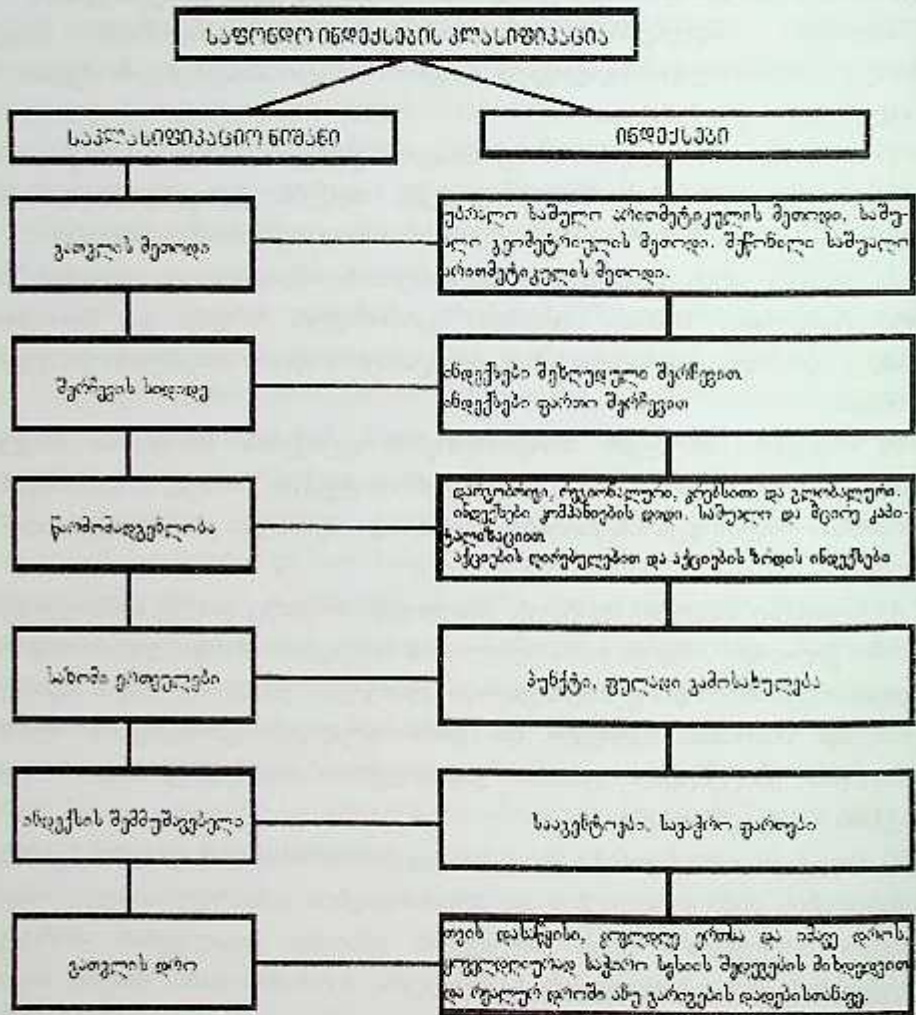 ᲡᲐᲤᲝᲜᲓᲝ ᲘᲜᲓᲔᲥᲡᲔᲑᲘᲡ ᲙᲚᲐᲡᲘᲤᲘᲙᲐᲪᲘᲐ
ᲡᲐᲙᲚᲐᲡᲘᲤᲘᲙᲐᲪᲘᲝ ᲜᲘᲨᲐᲜᲘ
ᲘᲜᲓᲔᲥᲡᲔᲑᲘ
გათვლის მეთოდი
უბრალო საშულო არითმეტიკულის მეთოდი. საშუ-
ალო გეომეტრიულის მეთოდი. შეწონილი საშუალო
არითმეტიკულის მეთოდი.
შერჩევის სიდიდე
ინდექსები შეზღუდული შერჩევით.
ინდექსები ფართო შერჩევით
წარმომადგენლობა
დარგობრივი, რეგიონალური, კრებსითი და გლობალური.
ინდექსები კომპანიების დიდი. საშუალო და მცირე კაპი-
ტალიზაციით.
აქციების ღირებულებით და აქციების ზრდის ინდექსები
საზომი ერთეულები
პუნქტი, ფულადი გამოსახულება
ინდექსის შემმუშავებელი
სააგენტოები, სავაჭრო ფართები
გათვლის დრო
თვის დასაწყისი, ყოველდღე ერთსა და იმავე დროს,
ყოველდღიურად სავაჭრო სესიის შედეგების მიხედვით
და რეალურ დროში ანუ გარიგების დადებისთანავე.